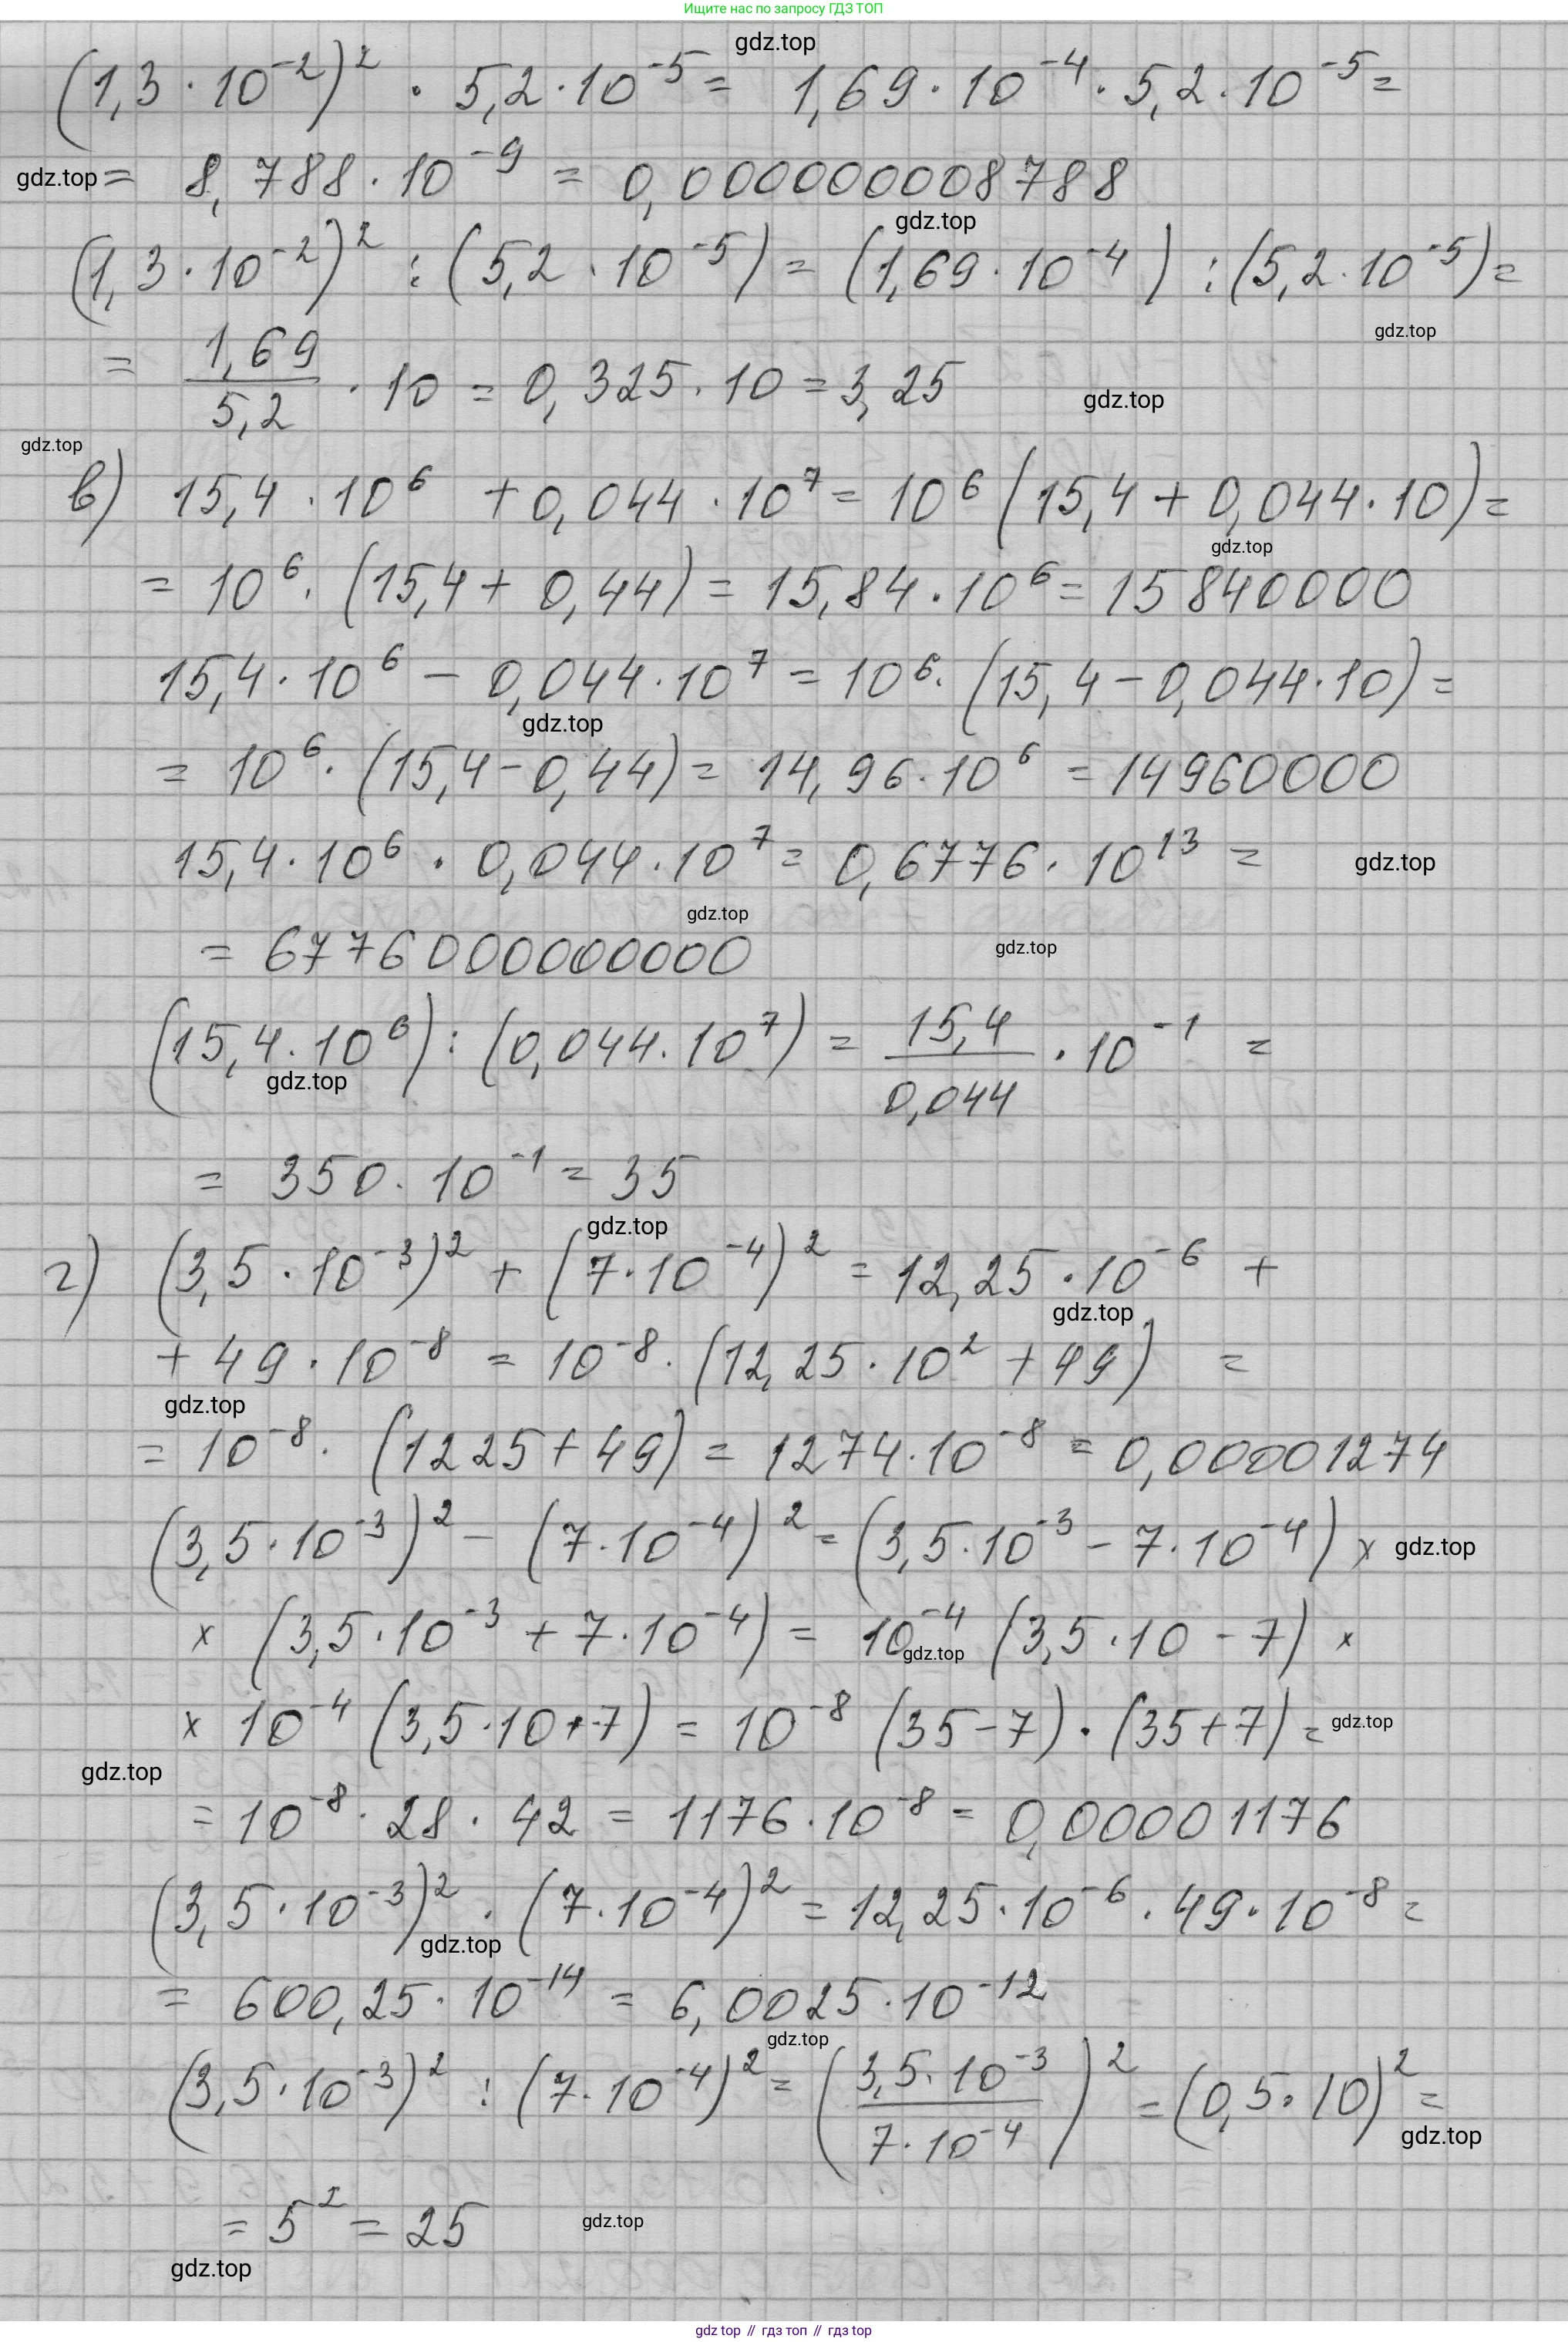 Ищите нас по запросу ГДЗ ТОП
gdz.top
(1,3 · 10⁻²)² · 5,2 · 10⁻⁵ = 1,69 · 10⁻⁴ · 5,2 · 10⁻⁵ =
gdz.top = 8,788 · 10⁻⁹ = 0,000000008788
gdz.top
(1,3 · 10⁻²)² : (5,2 · 10⁻⁵) = (1,69 · 10⁻⁴) : (5,2 · 10⁻⁵) =
gdz.top
= 1,69/5,2 · 10 = 0,325 · 10 = 3,25 gdz.top
gdz.top
в) 15,4 · 10⁶ + 0,044 · 10⁷ = 10⁶ (15,4 + 0,044 · 10) =
gdz.top
= 10⁶ · (15,4 + 0,44) = 15,84 · 10⁶ = 15840000
15,4 · 10⁶ - 0,044 · 10⁷ = 10⁶ · (15,4 - 0,044 · 10) =
gdz.top
= 10⁶ · (15,4 - 0,44) = 14,96 · 10⁶ = 14960000
15,4 · 10⁶ · 0,044 · 10⁷ = 0,6776 · 10¹³ = gdz.top
gdz.top
= 6776000000000 gdz.top
(15,4 · 10⁶) : (0,044 · 10⁷) = 15,4/0,044 · 10⁻¹ =
gdz.top
= 350 · 10⁻¹ = 35
gdz.top
г) (3,5 · 10⁻³)² + (7 · 10⁻⁴)² = 12,25 · 10⁻⁶ +
gdz.top
+ 49 · 10⁻⁸ = 10⁻⁸ · (12,25 · 10² + 49) =
gdz.top
= 10⁻⁸ · (1225 + 49) = 1274 · 10⁻⁸ = 0,00001274
(3,5 · 10⁻³)² - (7 · 10⁻⁴)² = (3,5 · 10⁻³ - 7 · 10⁻⁴) × gdz.top
× (3,5 · 10⁻³ + 7 · 10⁻⁴) = 10⁻⁴ (3,5 · 10 - 7) ×
gdz.top
× 10⁻⁴ (3,5 · 10 + 7) = 10⁻⁸ (35 - 7) · (35 + 7) = gdz.top
gdz.top
= 10⁻⁸ · 28 · 42 = 1176 · 10⁻⁸ = 0,00001176
(3,5 · 10⁻³)² · (7 · 10⁻⁴)² = 12,25 · 10⁻⁶ · 49 · 10⁻⁸ =
gdz.top
= 600,25 · 10⁻¹⁴ = 6,0025 · 10⁻¹²
gdz.top
(3,5 · 10⁻³)² : (7 · 10⁻⁴)² = (3,5 · 10⁻³/7 · 10⁻⁴)² = (0,5 · 10)² =
gdz.top
= 5² = 25 gdz.top
gdz.top
gdz top // гдз топ // гдз top